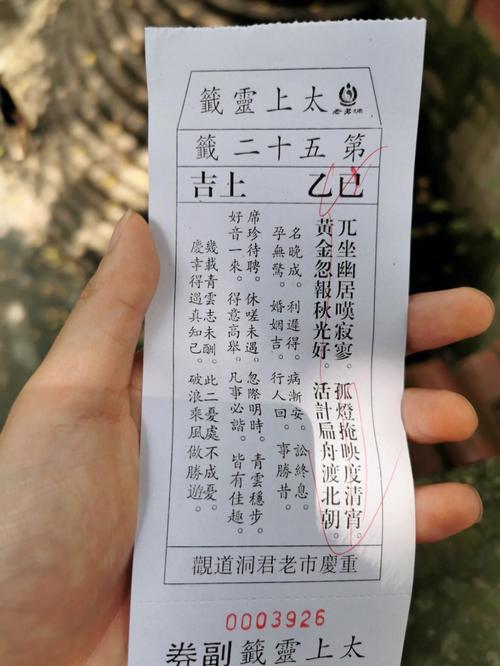 老君洞
太上靈籤
第五十二籤
已乙 上吉
兀坐幽居嘆寂寥。孤燈掩映度清宵。
黃金忽報秋光好。活計扁舟渡北朝。
名晚成。利遲得。病漸安。訟終息。
孕無驚。婚姻吉。行人回。事勝昔。
席珍待聘。休嗟未遇。忽際明時。青雲穩步。
好音一來。得意高舉。凡事必諧。皆有佳趣。
幾載青雲志未酬。此二憂處不成憂。
慶幸得遇真知己。破浪乘風做勝遊。
重慶市老君洞道觀
0003926
太上靈籤副券